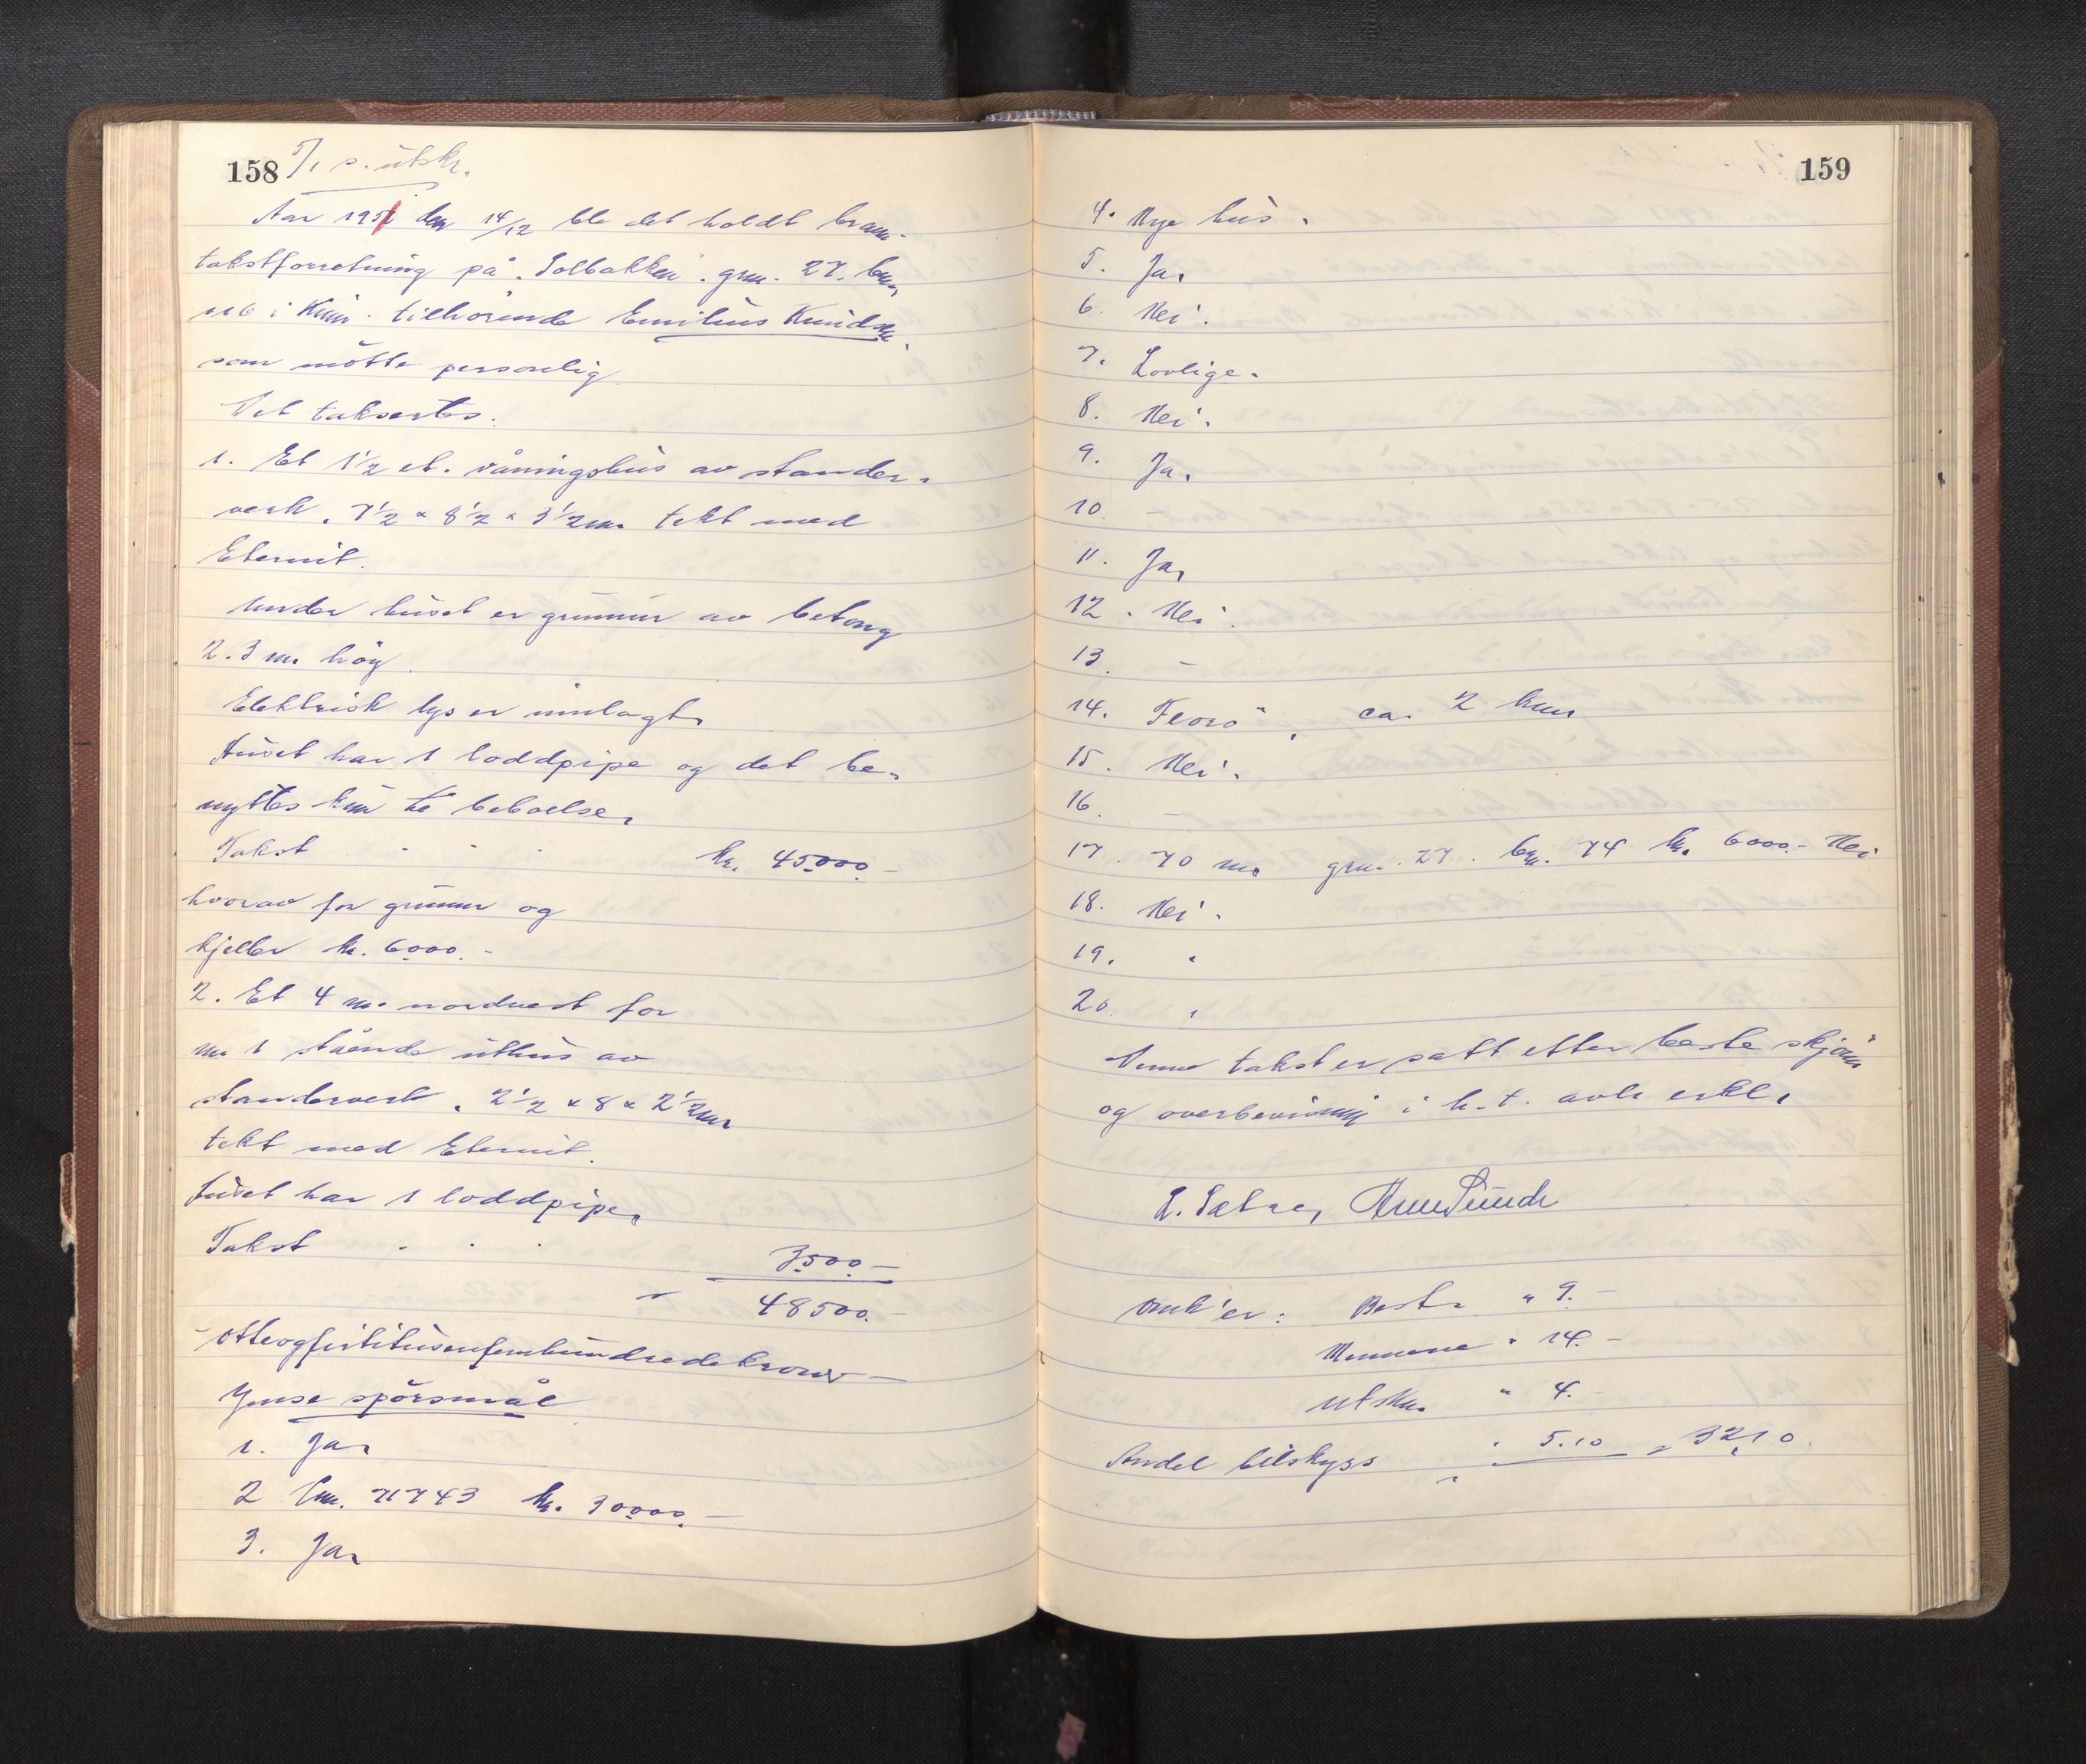 158 5/1 s. utskr.
Aar 1951 den 14/12 ble det holdt brann-
takstforretning på "Solbakken" gnr. 27. bnr.
116 i Kinn tilhörende Emilius Knudsen,
som mötte personlig.
Det taksertes:
1. Et 1 1/2 et. våningshus av stender-
verk. 7 1/2 x 8 1/2 x 3 1/2 m. tekt med
Eternit.
Under huset er grunnur av betong
2.3 m. höy.
Elektrisk lys er innlagt.
Huset har 1 loddpipe og det be-
nyttes kun til beboelse.
Takst . . . kr. 45000.-
hvorav for grunnur og
kjeller kr. 6000.-
2. Et 4 m. nordvest for
nr. 1 stående uthus av
stenderverk. 2 1/2 x 8 x 2 1/2 m.
tekt med Eternit.
Huset har 1 loddpipe.
Takst . . . 3500.-
" 48500.-
-Otteogfirtitusenfemhundrede kroner-
Ymse spörsmål
1. Ja.
2 Lnr. 71743 kr. 30000.-
3. Ja.
159
4. Nye hus.
5. Ja.
6. Nei.
7. Lovlige.
8. Nei.
9. Ja.
10 -
11. Ja.
12. Nei.
13. -
14. Florö, ca. 2 km.
15. Nei.
16. -
17. 70 m. gnr. 27. bnr. 74 kr. 6000.- Nei
18. Nei.
19. "
20. "
Denne takst er satt etter beste skjönn
og overbevisning i h.t. avl. erkl.
L. Sætre,
Omk'er: Best. " 9.-
Mennene " 14.-
Utskr. " 4.-
Andel bilskyss " 5.10 = 32,10.